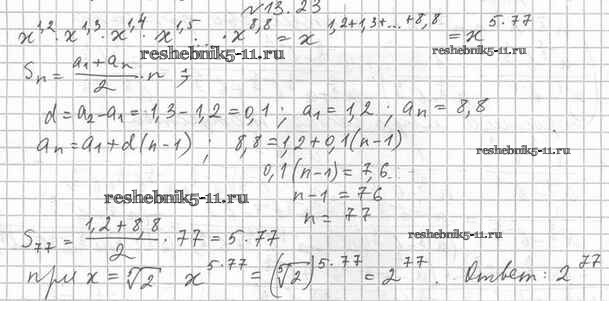 №13.23
x^1,2 · x^1,3 · x^1,4 · x^1,5 · ... · x^8,8 = x^(1,2+1,3+...+8,8) = x^(5·77)
reshebnik5-11.ru reshebnik5-11.ru
S_n = (a_1 + a_n)/2 · n ;
d = a_2 - a_1 = 1,3 - 1,2 = 0,1 ; a_1 = 1,2 ; a_n = 8,8
a_n = a_1 + d(n-1) ; 8,8 = 1,2 + 0,1(n-1)
0,1(n-1) = 7,6
reshebnik5-11.ru n-1 = 76
n = 77
S_77 = (1,2 + 8,8)/2 · 77 = 5·77 reshebnik5-11.ru
при x = ⁵√2 x^(5·77) = (⁵√2)^(5·77) = 2^77. Ответ: 2^77